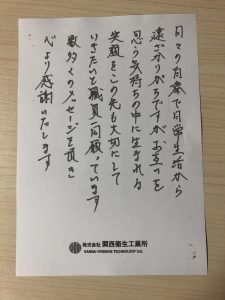 日々の自粛で日常生活から
遠ざかりがちですがお互いを
思う気持ちの中に生まれる
笑顔をこの先も大切にして
いきたいと職員一同願っています
数多くのメッセージを頂き
心より感謝いたします
株式会社 関西衛生工業所
KANSAI HYGIENE TECHNOLOGY Ltd.